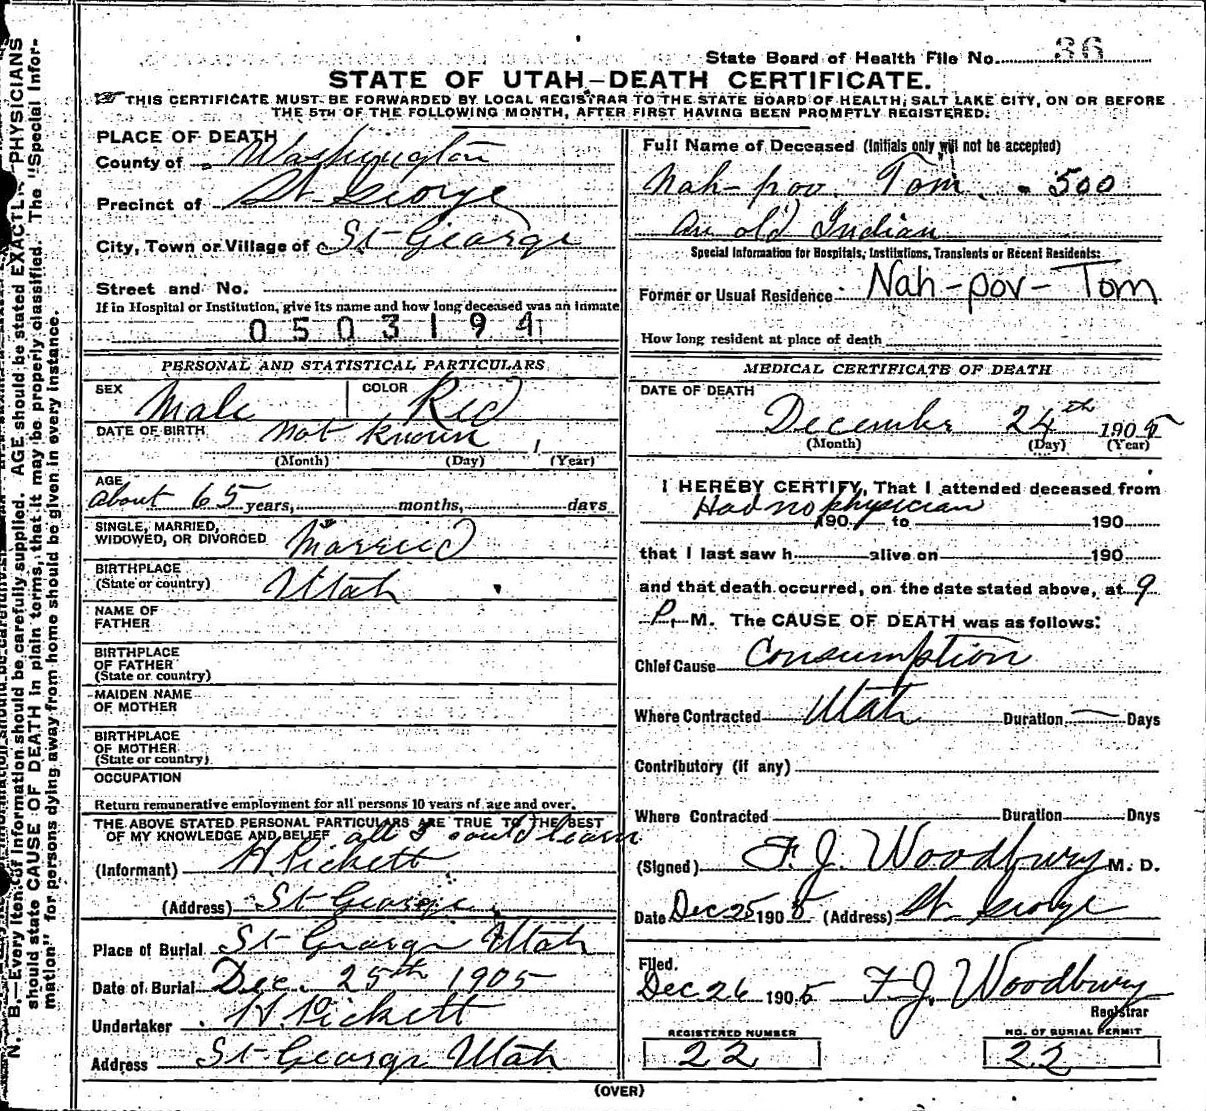 State Board of Health File No. 36
STATE OF UTAH—DEATH CERTIFICATE.
THIS CERTIFICATE MUST BE FORWARDED BY LOCAL REGISTRAR TO THE STATE BOARD OF HEALTH, SALT LAKE CITY, ON OR BEFORE
THE 5TH OF THE FOLLOWING MONTH, AFTER FIRST HAVING BEEN PROMPTLY REGISTERED.
PLACE OF DEATH
County of Washington
Precinct of St. George
City, Town or Village of St George
Street and No.
If in Hospital or Institution, give its name and how long deceased was an inmate
0503194
PERSONAL AND STATISTICAL PARTICULARS
SEX Male COLOR Red
DATE OF BIRTH not known 1
(Month) (Day) (Year)
AGE
about 65 years, months, days
SINGLE, MARRIED,
WIDOWED, OR DIVORCED Married
BIRTHPLACE
(State or country) Utah
NAME OF
FATHER
BIRTHPLACE
OF FATHER
(State or country)
MAIDEN NAME
OF MOTHER
BIRTHPLACE
OF MOTHER
(State or country)
OCCUPATION
Return remunerative employment for all persons 10 years of age and over.
THE ABOVE STATED PERSONAL PARTICULARS ARE TRUE TO THE BEST
OF MY KNOWLEDGE AND BELIEF all I could learn
(Informant) H. Pickett
(Address) St George
Place of Burial St George Utah
Date of Burial Dec. 25th 1905
Undertaker H. Pickett
Address St George Utah
Full Name of Deceased (Initials only will not be accepted)
Nah-pov. Tom. - 500
An old Indian
Special Information for Hospitals, Institutions, Transients or Recent Residents:
Former or Usual Residence Nah-pov-Tom
How long resident at place of death
MEDICAL CERTIFICATE OF DEATH
DATE OF DEATH
December 24th 1905
(Month) (Day) (Year)
I HEREBY CERTIFY, That I attended deceased from
Had no physician
190 to 190
that I last saw h alive on 190
and that death occurred, on the date stated above, at 9
P. M. The CAUSE OF DEATH was as follows:
Chief Cause Consumption
Where Contracted Utah Duration — Days
Contributory (if any)
Where Contracted Duration Days
(Signed) F. J. Woodbury M. D.
Date Dec 25 1905 (Address) St George
Filed.
Dec 26 1905 F. J. Woodbury
Registrar
REGISTERED NUMBER
22
NO. OF BURIAL PERMIT
22
(OVER)
N. B.—Every item of information should be carefully supplied. AGE should be stated EXACTLY. PHYSICIANS
should state CAUSE OF DEATH in plain terms, that it may be properly classified. The "Special Infor-
mation" for persons dying away from home should be given in every instance.